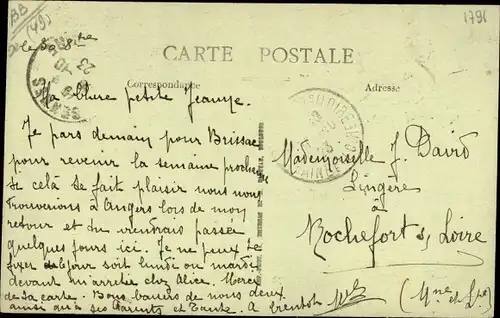 BB
(49)
1791
CARTE POSTALE
Correspondance
Adresse
RENNES
Ma chère petite Jeanne.
Je pars demain pour Brissac
pour revenir la semaine prochaine
si celà se fait plaisir nous nous
trouverions à Angers lors de mon
retour et tu viendrais passer
quelques jours ici. Je ne peux te
fixer le jour soit lundi ou mardi
devant m'arrêter chez Alice. Merci
de ta carte. Bons baisers de nous deux
ainsi qu'à tes Parents et Tante. A bientôt
Mademoiselle J. David
Lingère
à
Rochefort s/ Loire
(Mne et Lre)